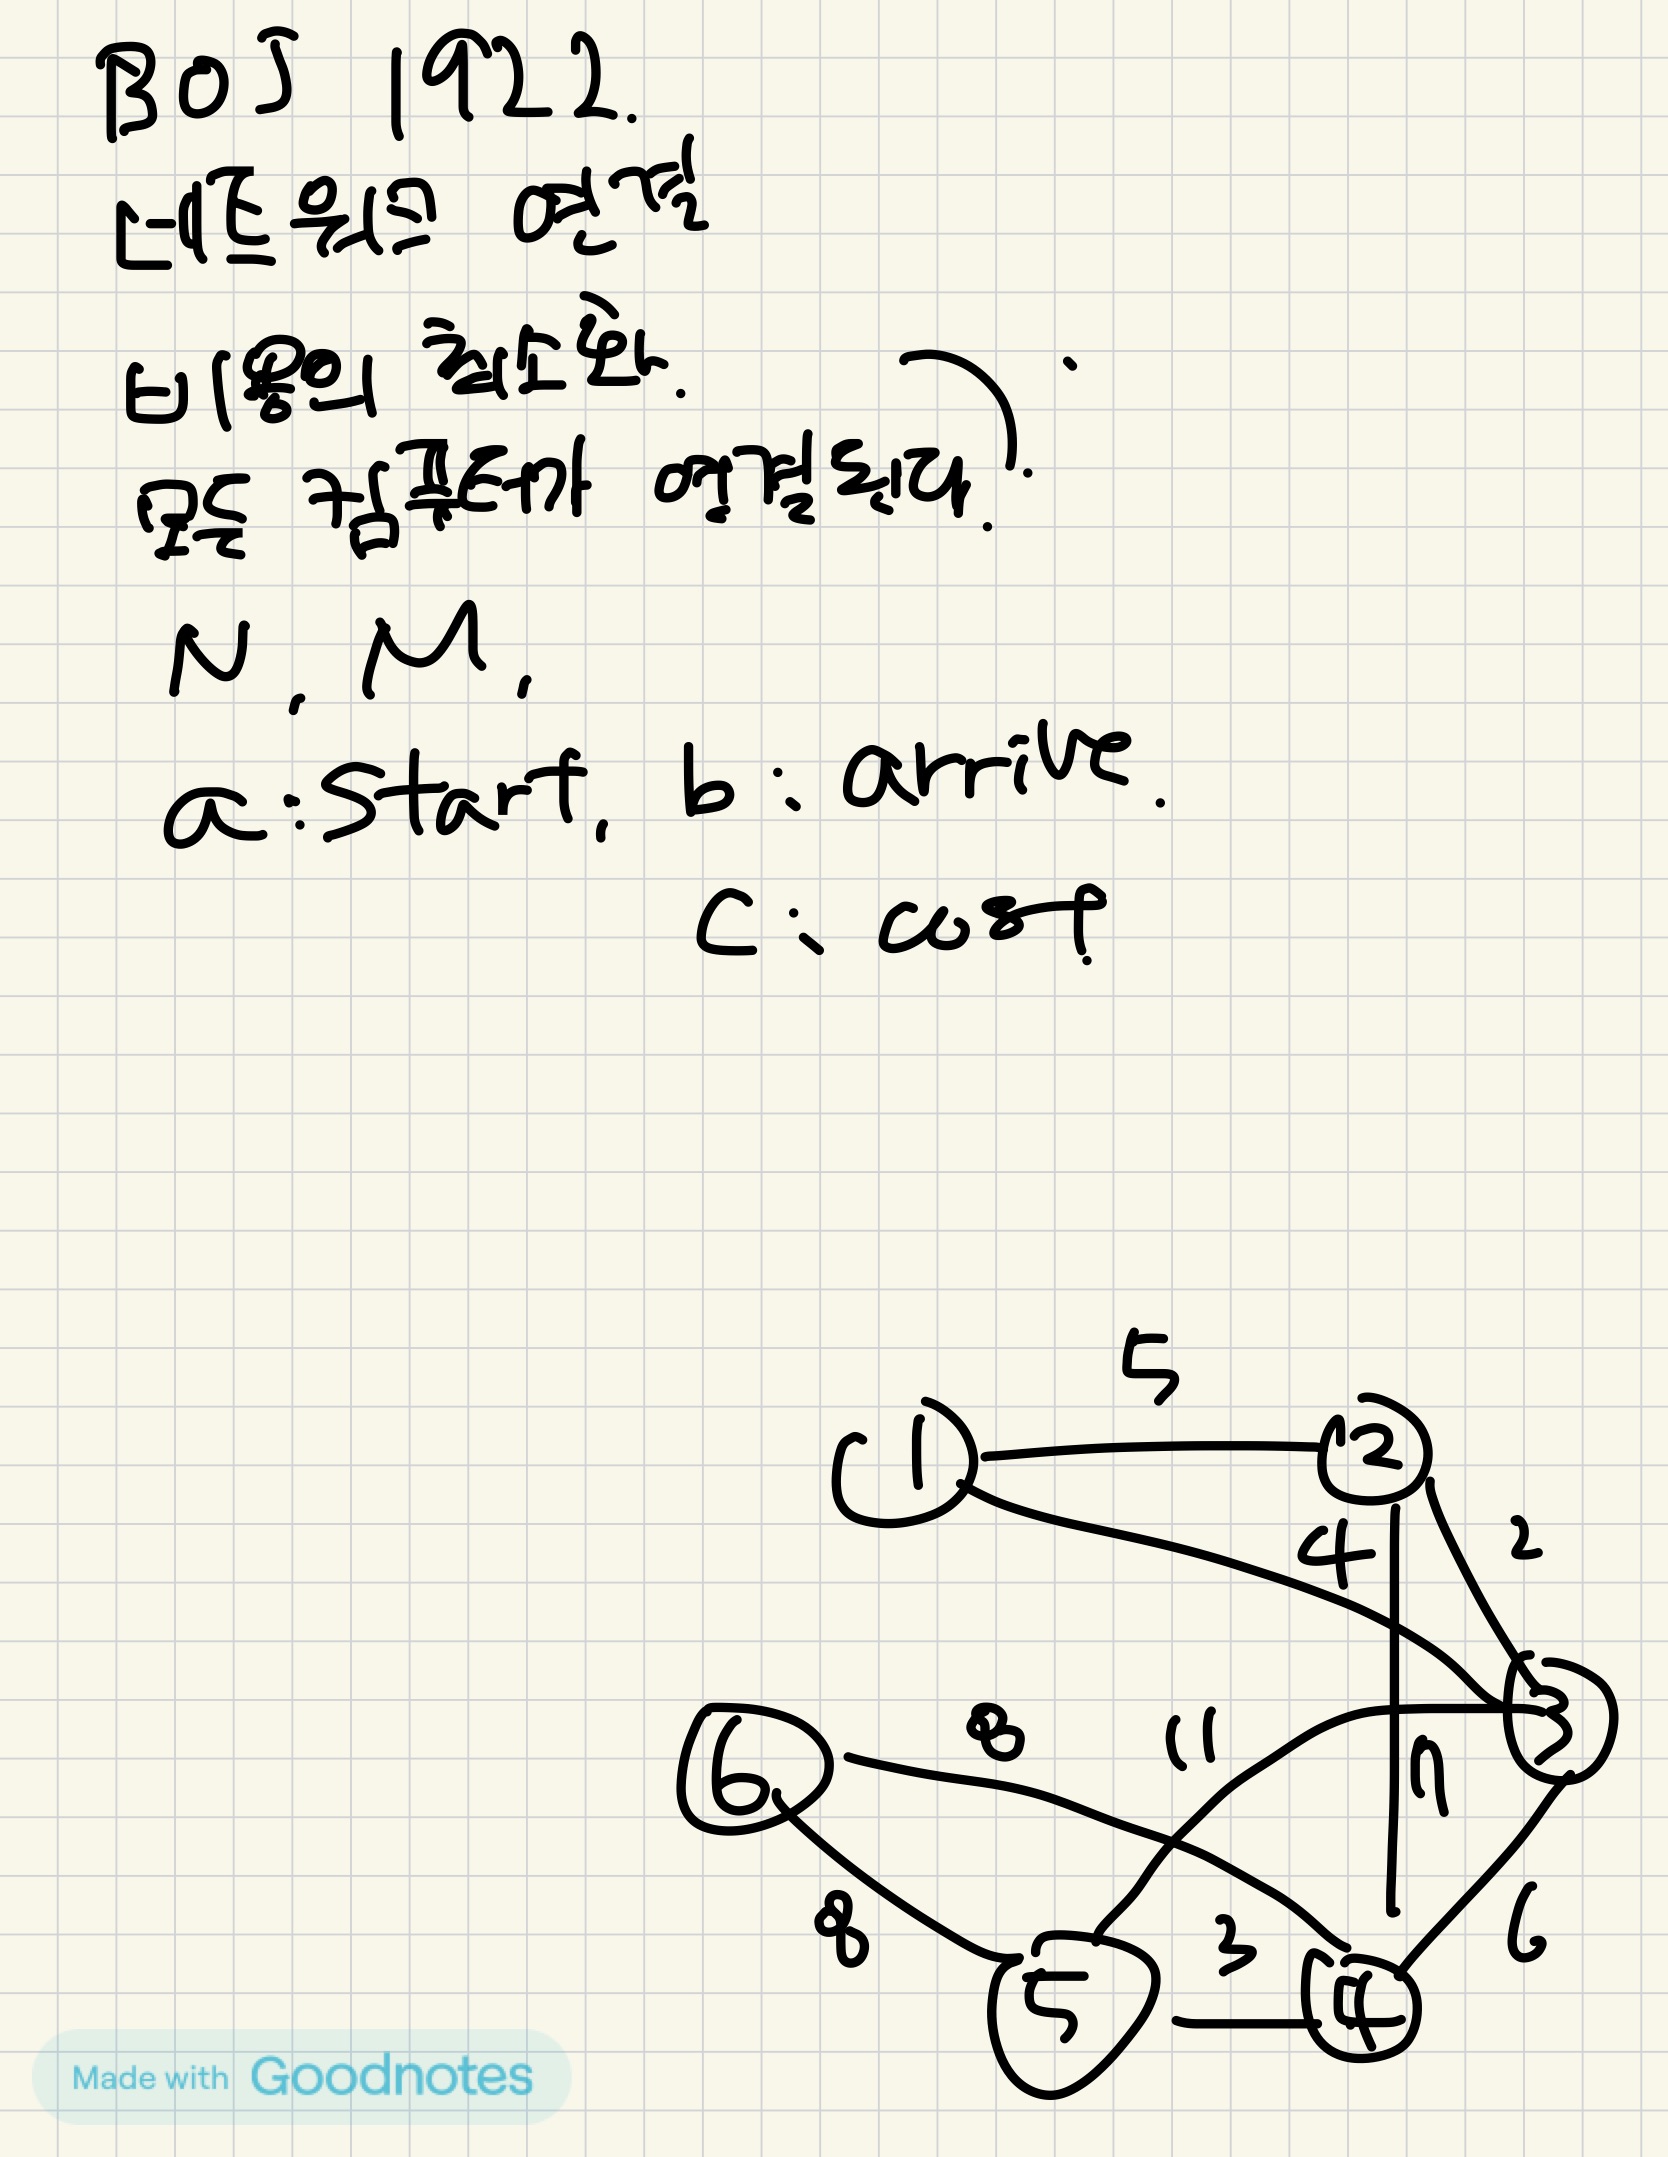 BOJ 1922.
네트워크 연결
비용의 최소화.
모든 컴퓨터가 연결된다.
N, M,
a: Start, b: arrive.
C: cost.
5
1 2
4 2
3
8 11 7
6
8 3 6
5 4
Made with Goodnotes